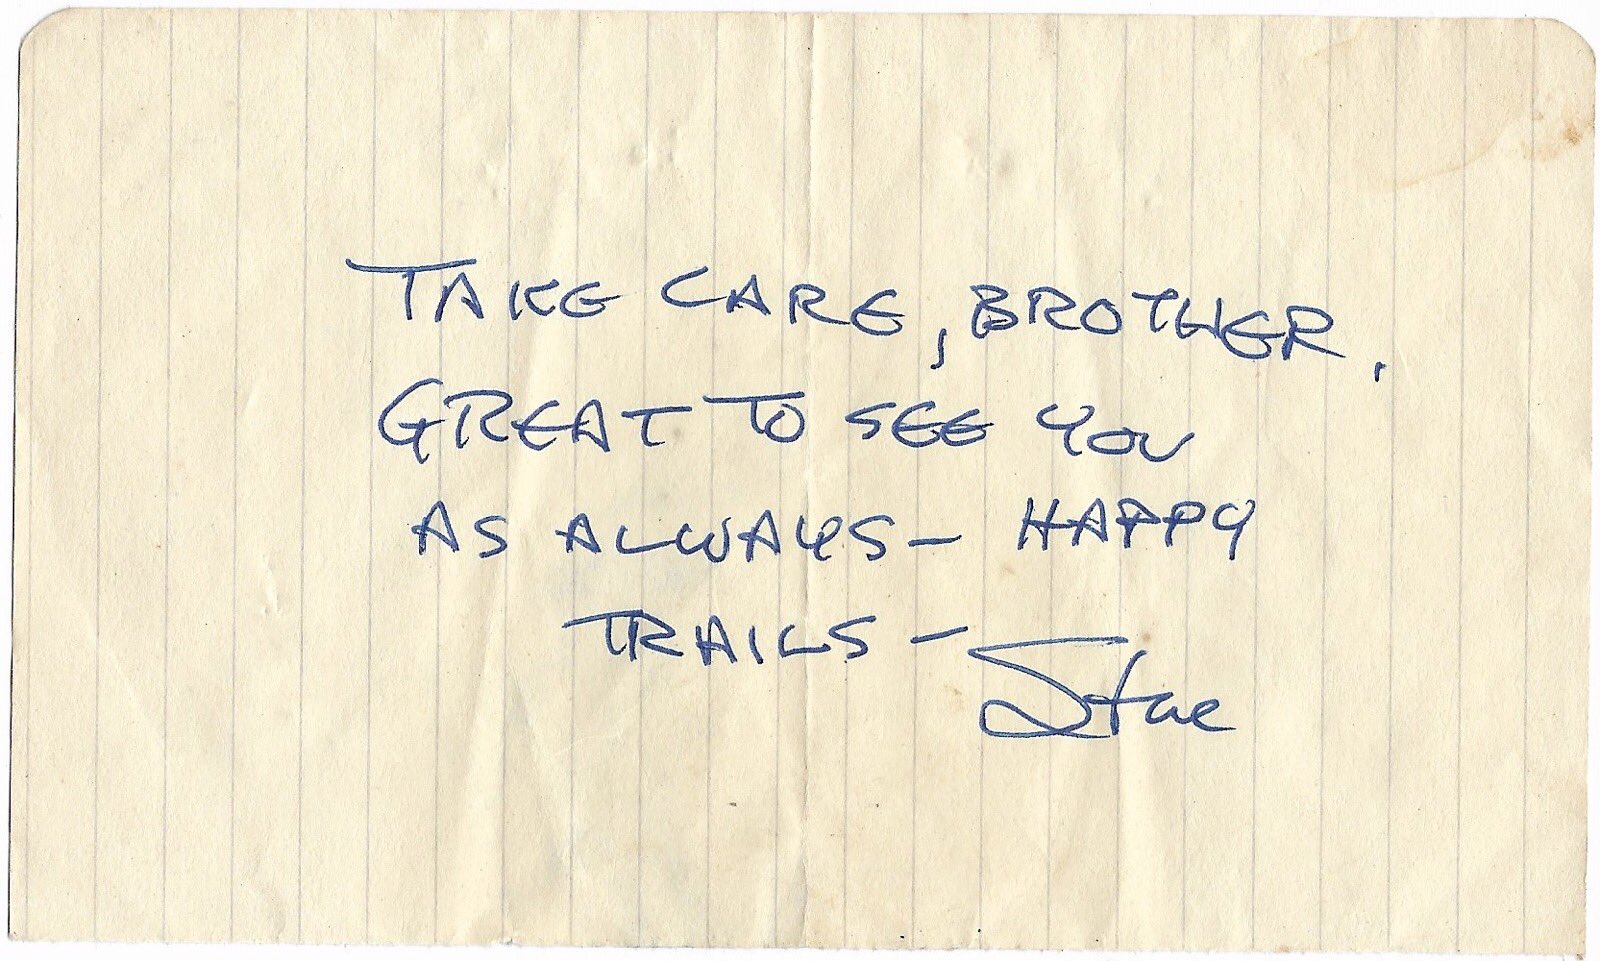 TAKE CARE, BROTHER.
GREAT TO SEE YOU
AS ALWAYS – HAPPY
TRAILS –